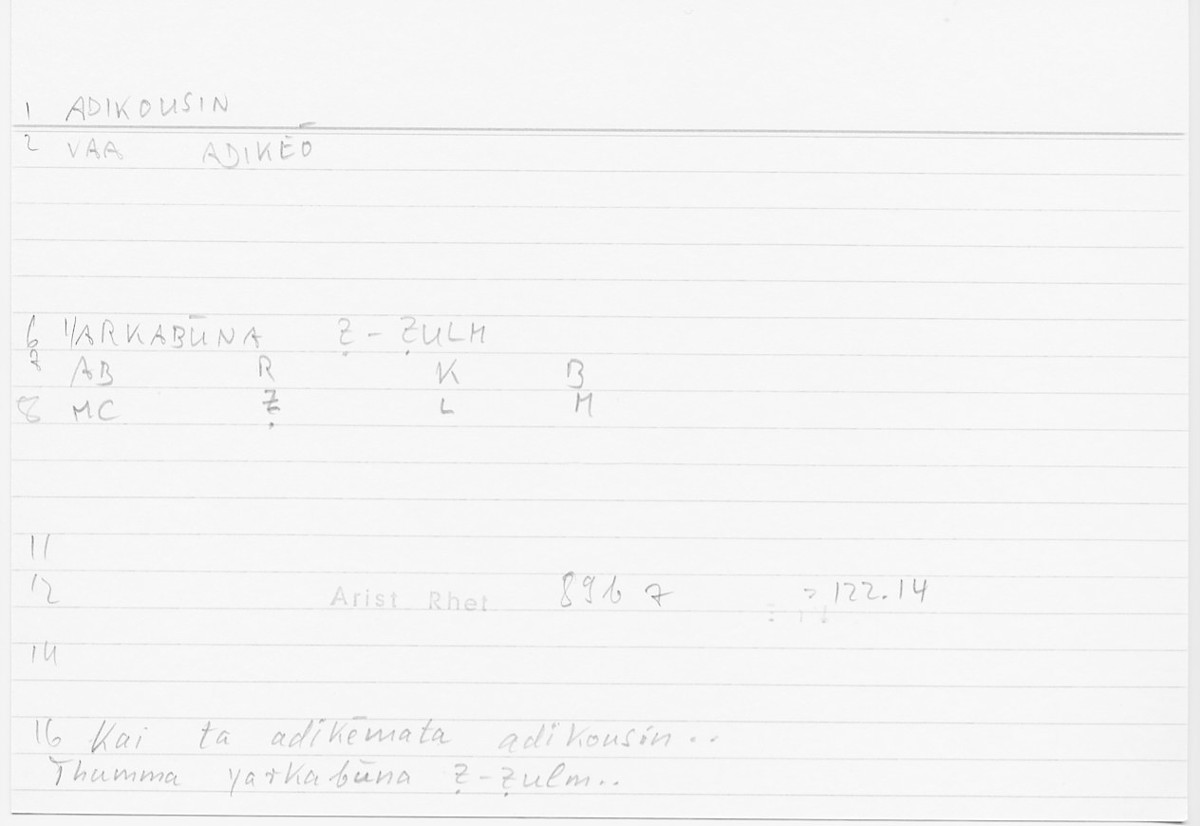 1 ADIKOUSIN
2 VAA ADIKEŌ
6 YARKABŪNA Ẓ-ẒULM
7 AB R K B
8 MC Ẓ L M
11
12 Arist Rhet 89b 7 = 122.14
14
16 Kai ta adikēmata adikousin..
Thumma yarkabūna Ẓ-Ẓulm..